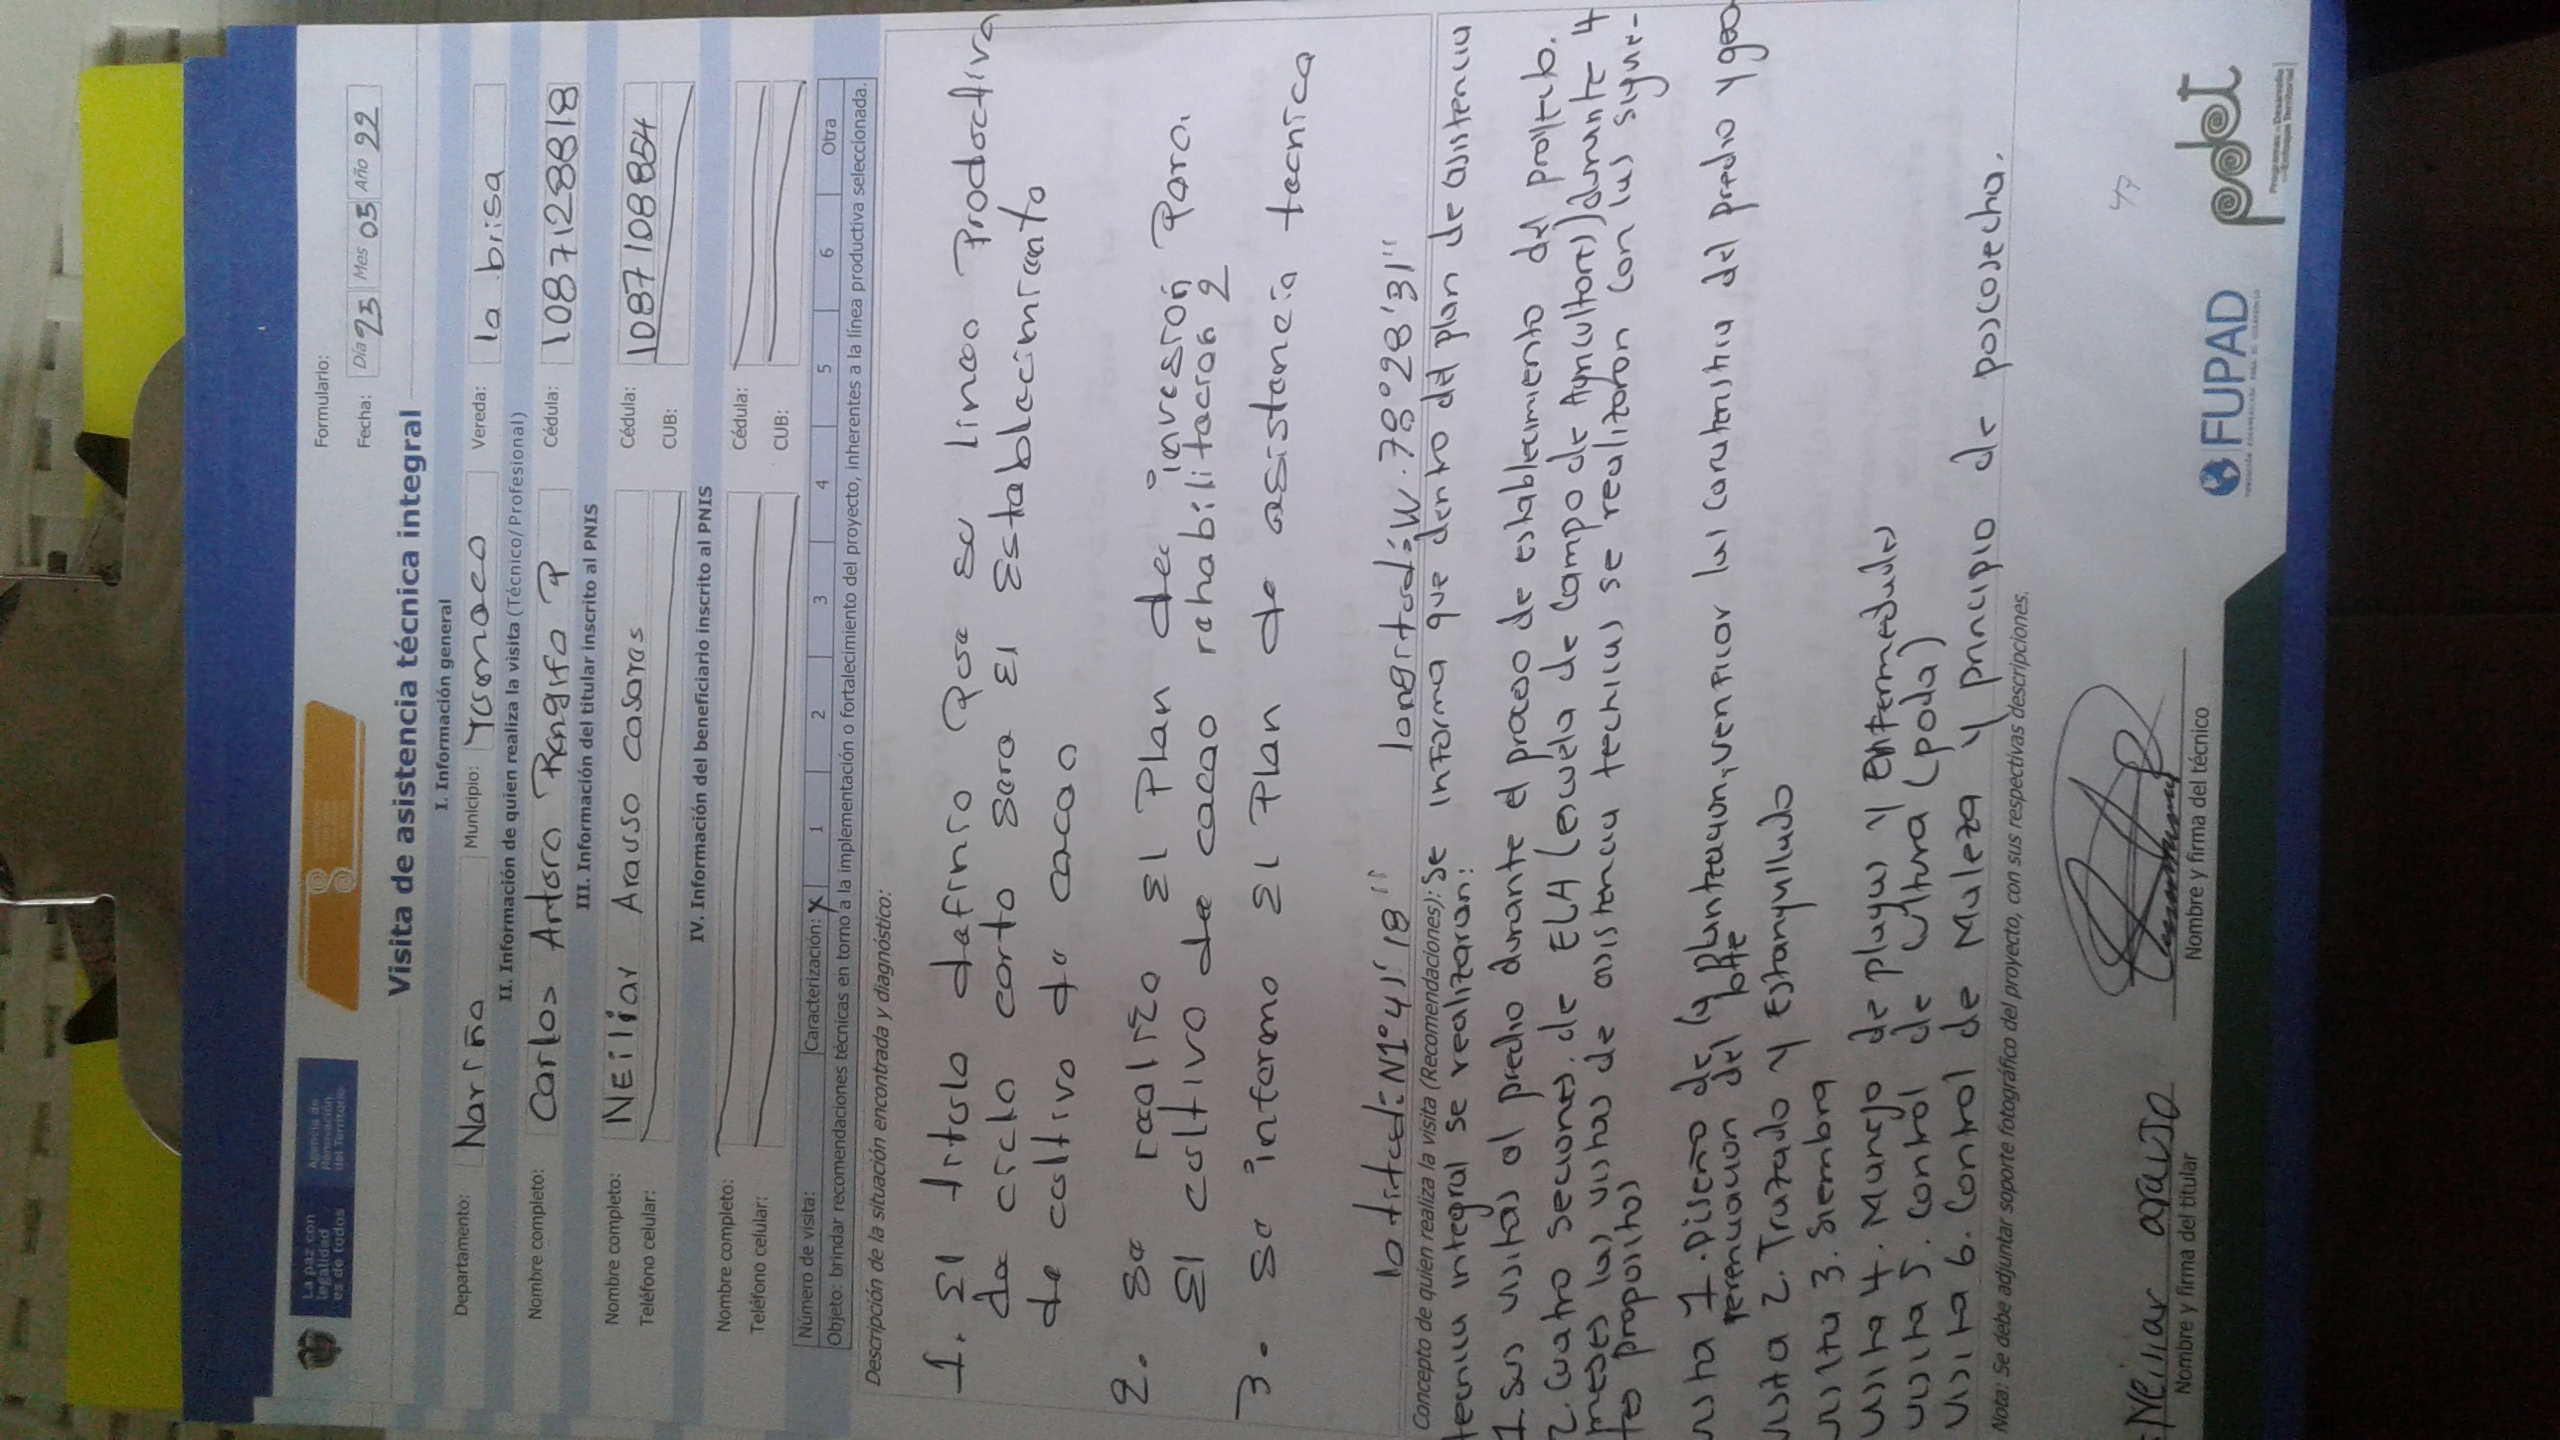 La paz con
legalidad
es de todos
Agencia de
Renovación
del Territorio
Formulario:
Fecha: Día 23 Mes 05 Año 22
Visita de asistencia técnica integral
I. Información general
Departamento: Nariño Municipio: Tumaco Vereda: la brisa
II. Información de quien realiza la visita (Técnico/Profesional)
Nombre completo: Carlos Arturo Rengifo P Cédula: 1087128818
III. Información del titular inscrito al PNIS
Nombre completo: NEiliar Araujo Casares Cédula: 1087108854
Teléfono celular: CUB:
IV. Información del beneficiario inscrito al PNIS
Nombre completo: Cédula:
Teléfono celular: CUB:
Número de visita: Caracterización: X 1 2 3 4 5 6 Otra
Objeto: brindar recomendaciones técnicas en torno a la implementación o fortalecimiento del proyecto, inherentes a la línea productiva seleccionada.
Descripción de la situación encontrada y diagnóstico:
1. El titulo definio Que su linea Productiva
de ciclo corto sera El Establecimiento
de cultivo de cacao
2. Se realizo El Plan de invesion Para
El cultivo de cacao rehabilitacion 2
3. Se informo El Plan de asistencia tecnica
latitud: N1°41'18" longitud: W.78°28'31"
Concepto de quien realiza la visita (Recomendaciones): Se informa que dentro del plan de asistencia
tecnica integral se realizaran:
1. Sus visitas al predio durante el proceso de establecimiento del proyecto.
2. Cuatro secciones de ELA (escuela de campo de Agricultores) durante 4
meses las visitas de asistencia tecnicas se realizaron con las siguien-
tes propositos
visita 1. Diseño de la plantacion, verificar las caracteristica del predio y geo
referenciacion del lote
visita 2. Trazado y Estanquillado
visita 3. Siembra
visita 4. Manejo de plagas y Enfermedades
visita 5. control de cultura (poda)
visita 6. Control de Maleza y principio de poscosecha.
Nota: Se debe adjuntar soporte fotográfico del proyecto, con sus respectivas descripciones.
47
Neiliar araujo
Nombre y firma del titular
Nombre y firma del técnico
FUPAD
pdet
Programas de Desarrollo
con Enfoque Territorial